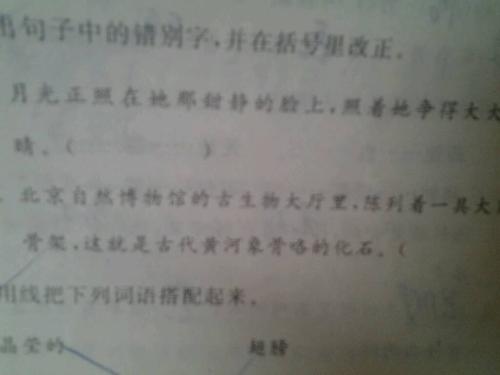 出句子中的错别字,并在括号里改正.
月光正照在她那甜静的脸上,照着她争得大大
晴。( )
北京自然博物馆的古生物大厅里,陈列着一具大
骨架,这就是古代黄河象骨咯的化石。(
用线把下列词语搭配起来。
晶莹的 翅膀